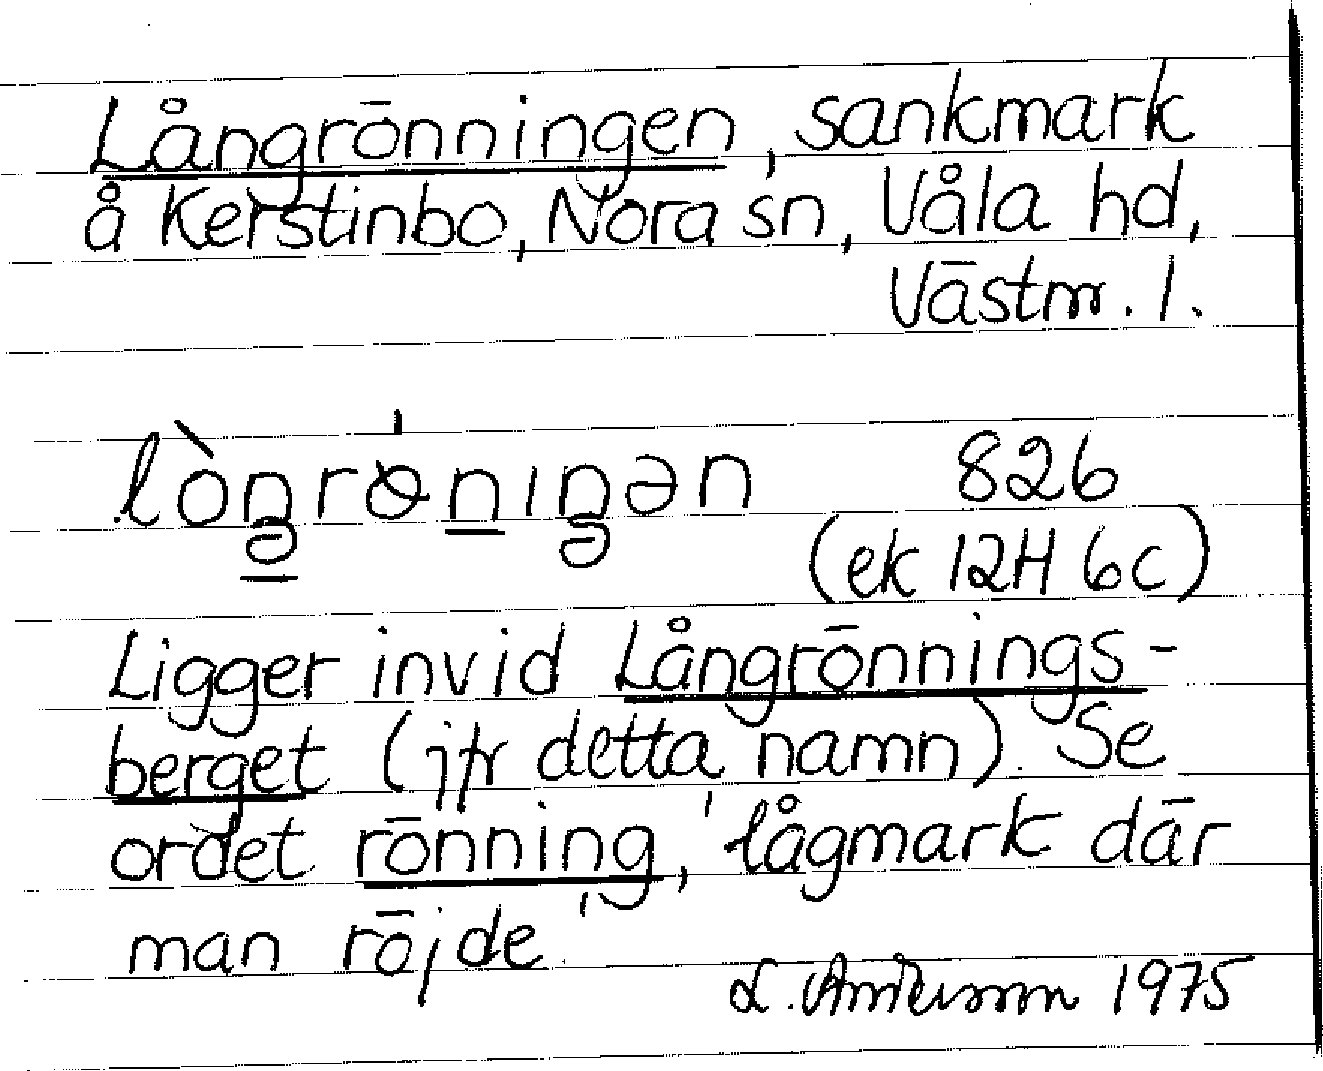 Långrönningen, sankmark
å Kerstinbo, Nora sn, Våla hd,
Västm. l.
lòŋrɵ̀niŋən 826
(ek 12H 6c)
Ligger invid Långrönnings-
berget (jfr detta namn). Se
ordet rönning, 'lågmark där
man röjde'
L. Andersson 1975